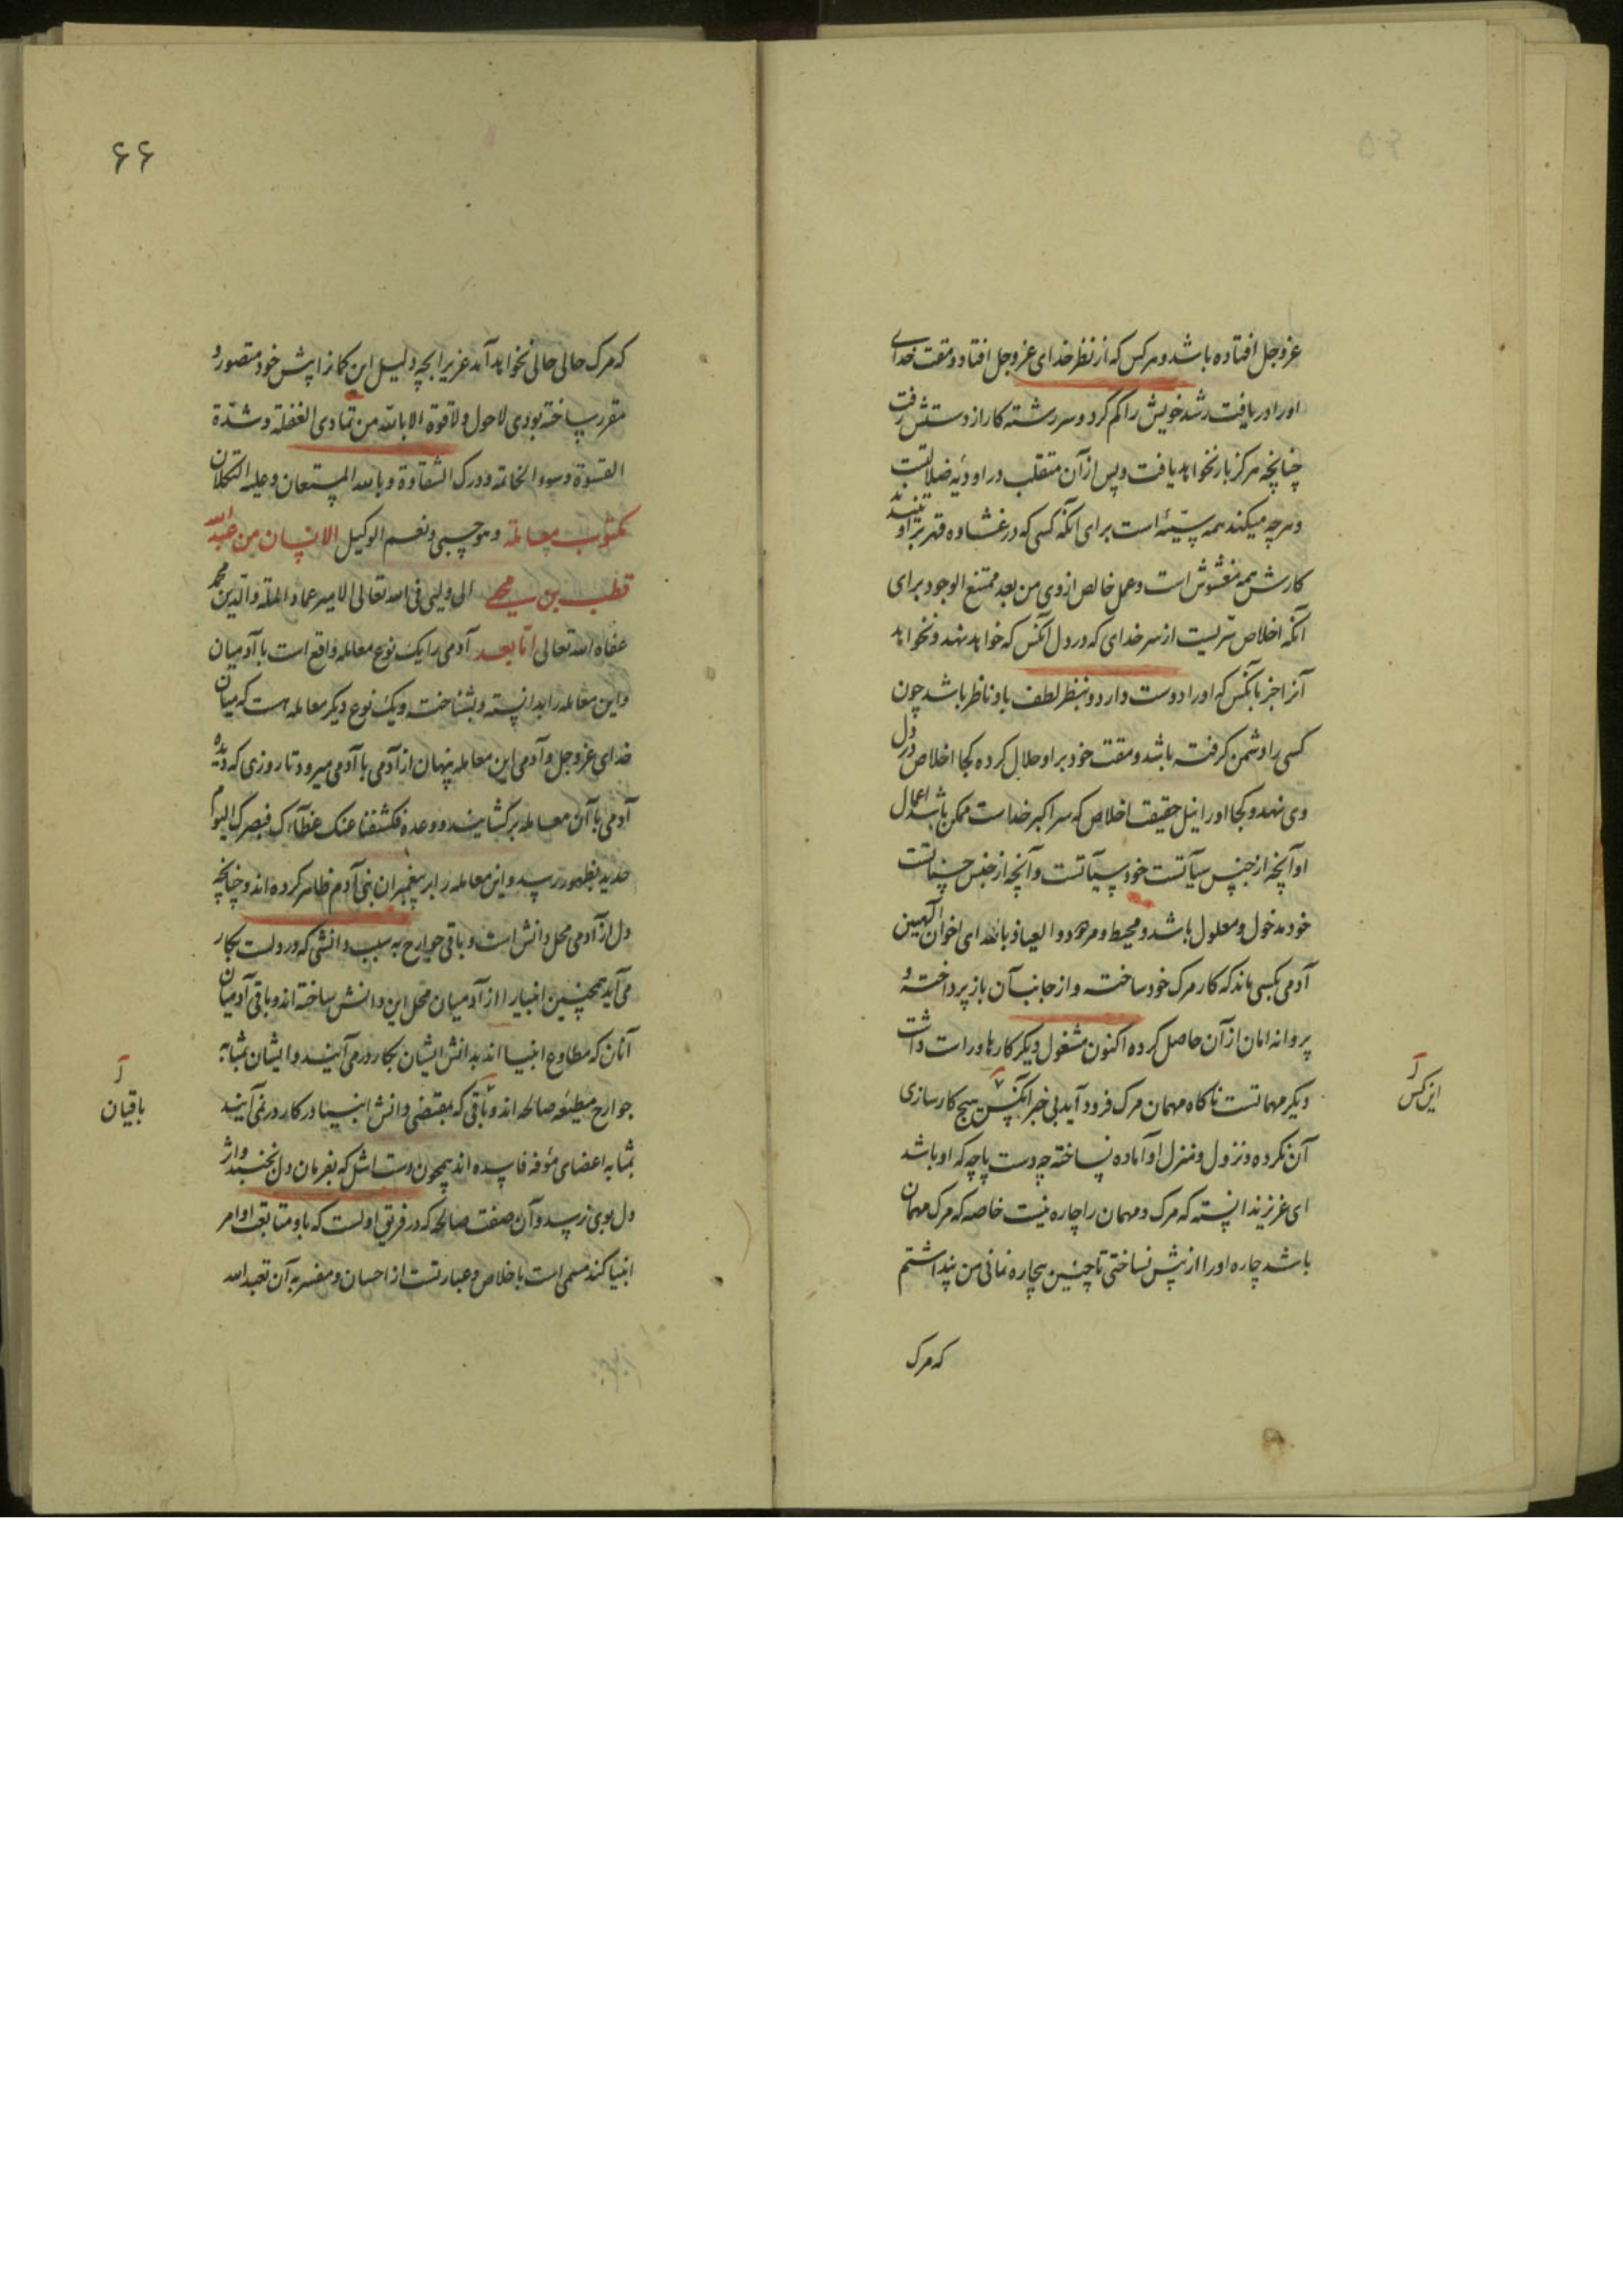 عزوجل افتاده باشد و هرکس که از نظر خدای عزوجل افتاد و مقت خدای
او را دریافت رشد خویش را کم کرد و سررشته کار از دستش رفت
چنانچه هرکز باز نخواهد یافت و پس از آن متقلب در اودیه ضلالتست
و هرچه میکند همه سیّئه است برای آنکه کسی که در غشاوه قهر بر او تنیند
کارش همه مغشوش است و عمل خالص از وی من بعد ممتنع الوجود برای
آنکه اخلاص سرّیست از سر خدای که در دل آنکس که خواهد نهد و نخواهد
آنرا جز بآنکس که او را دوست دارد و بنظر لطف باو ناظر باشد چون
کسی را دشمن کرفته باشد و مقت خود بر او حلال کرده کجا اخلاص در دل
وی نهد و کجا او را نیل حقیقت اخلاص که سر اکبر خداست ممکن باشد اعمال
او آنچه از جنس سیآتست خود سیآتست و آنچه از جنس حسناتست
خود مدخول و معلول باشد و محیط و مردود و العیاذ بالله ای اخوان آلهیین
آدمی بکسی ماند که کار مرک خود ساخته و از جانب آن باز پرداخته و
پروانه امان از آن حاصل کرده اکنون مشغول دیکر کارها و راست داشت
دیکر مهماتست ناکاه مهمان مرک فرود آید بی خبر آنکس هیچ کارسازی
آن نکرده و نزول و منزل او آماده نساخته چه دست پاچه که او باشد
ای عزیز ندانسته که مرک و مهمان را چاره نیست خاصه که مرک مهمان
باشد چاره او را از پیش نساختی تا چنین بیچاره نمانی من پنداشتم
که مرک
این کس
۶۶
که مرک حالی حالی نخواهد آمد عزیزا بچه دلیل این کمانرا پیش خود متصور و
مقرر ساخته بودی لاحول ولاقوة الا بالله من تمادی الغفلة و شدّة
القسوة و سوء الخاتمة و درک الشقاوة و بالله المستعان و علیه التکلان
و هو حسبی و نعم الوکیل مکتوب معاملة الانسان من عبدالله
قطب بن محیی الی ولیی فی الله تعالی الامیر عماد الملة و الدین محمد
عفاه الله تعالی امّا بعد آدمی را یک نوع معامله واقع است با آدمیان
و این معامله را بدانسته و بشناخته و یک نوع دیکر معامله هست که میان
خدای عزوجل و آدمی این معامله پنهان از آدمی با آدمی میرود تا روزی که دیده
آدمی با آن معامله برکشایند و وعده فکشفنا عنک غطآءک فبصرک الیوم
حدید بظهور رسد و این معامله را بر پیغمبران بنی آدم ظاهر کرده اند و چنانچه
دل از آدمی محل دانش است و باقی جوارح به سبب دانشی که در دلست بکار
می آید همچنین انبیا را از آدمیان محل این دانش ساخته اند و باقی آدمیان
آنان که مطاوع انبیا اند بدانش ایشان بکار در می آیند و ایشان بمثابه
جوارح مطیعه صالحه اند و باقی که بمقتضی دانش انبیا در کار در نمی آیند
بمثابه اعضای مؤفه فاسده اند همچون دست اشل که بفرمان دل نجنبد و از
دل بوی نرسد و آن صفت صالحه که در فریق اولست که باو متابعت اوامر
انبیا کند مسمی است باخلاص و عبارتست از احسان و مفسر به آن تعبد الله
باقیان